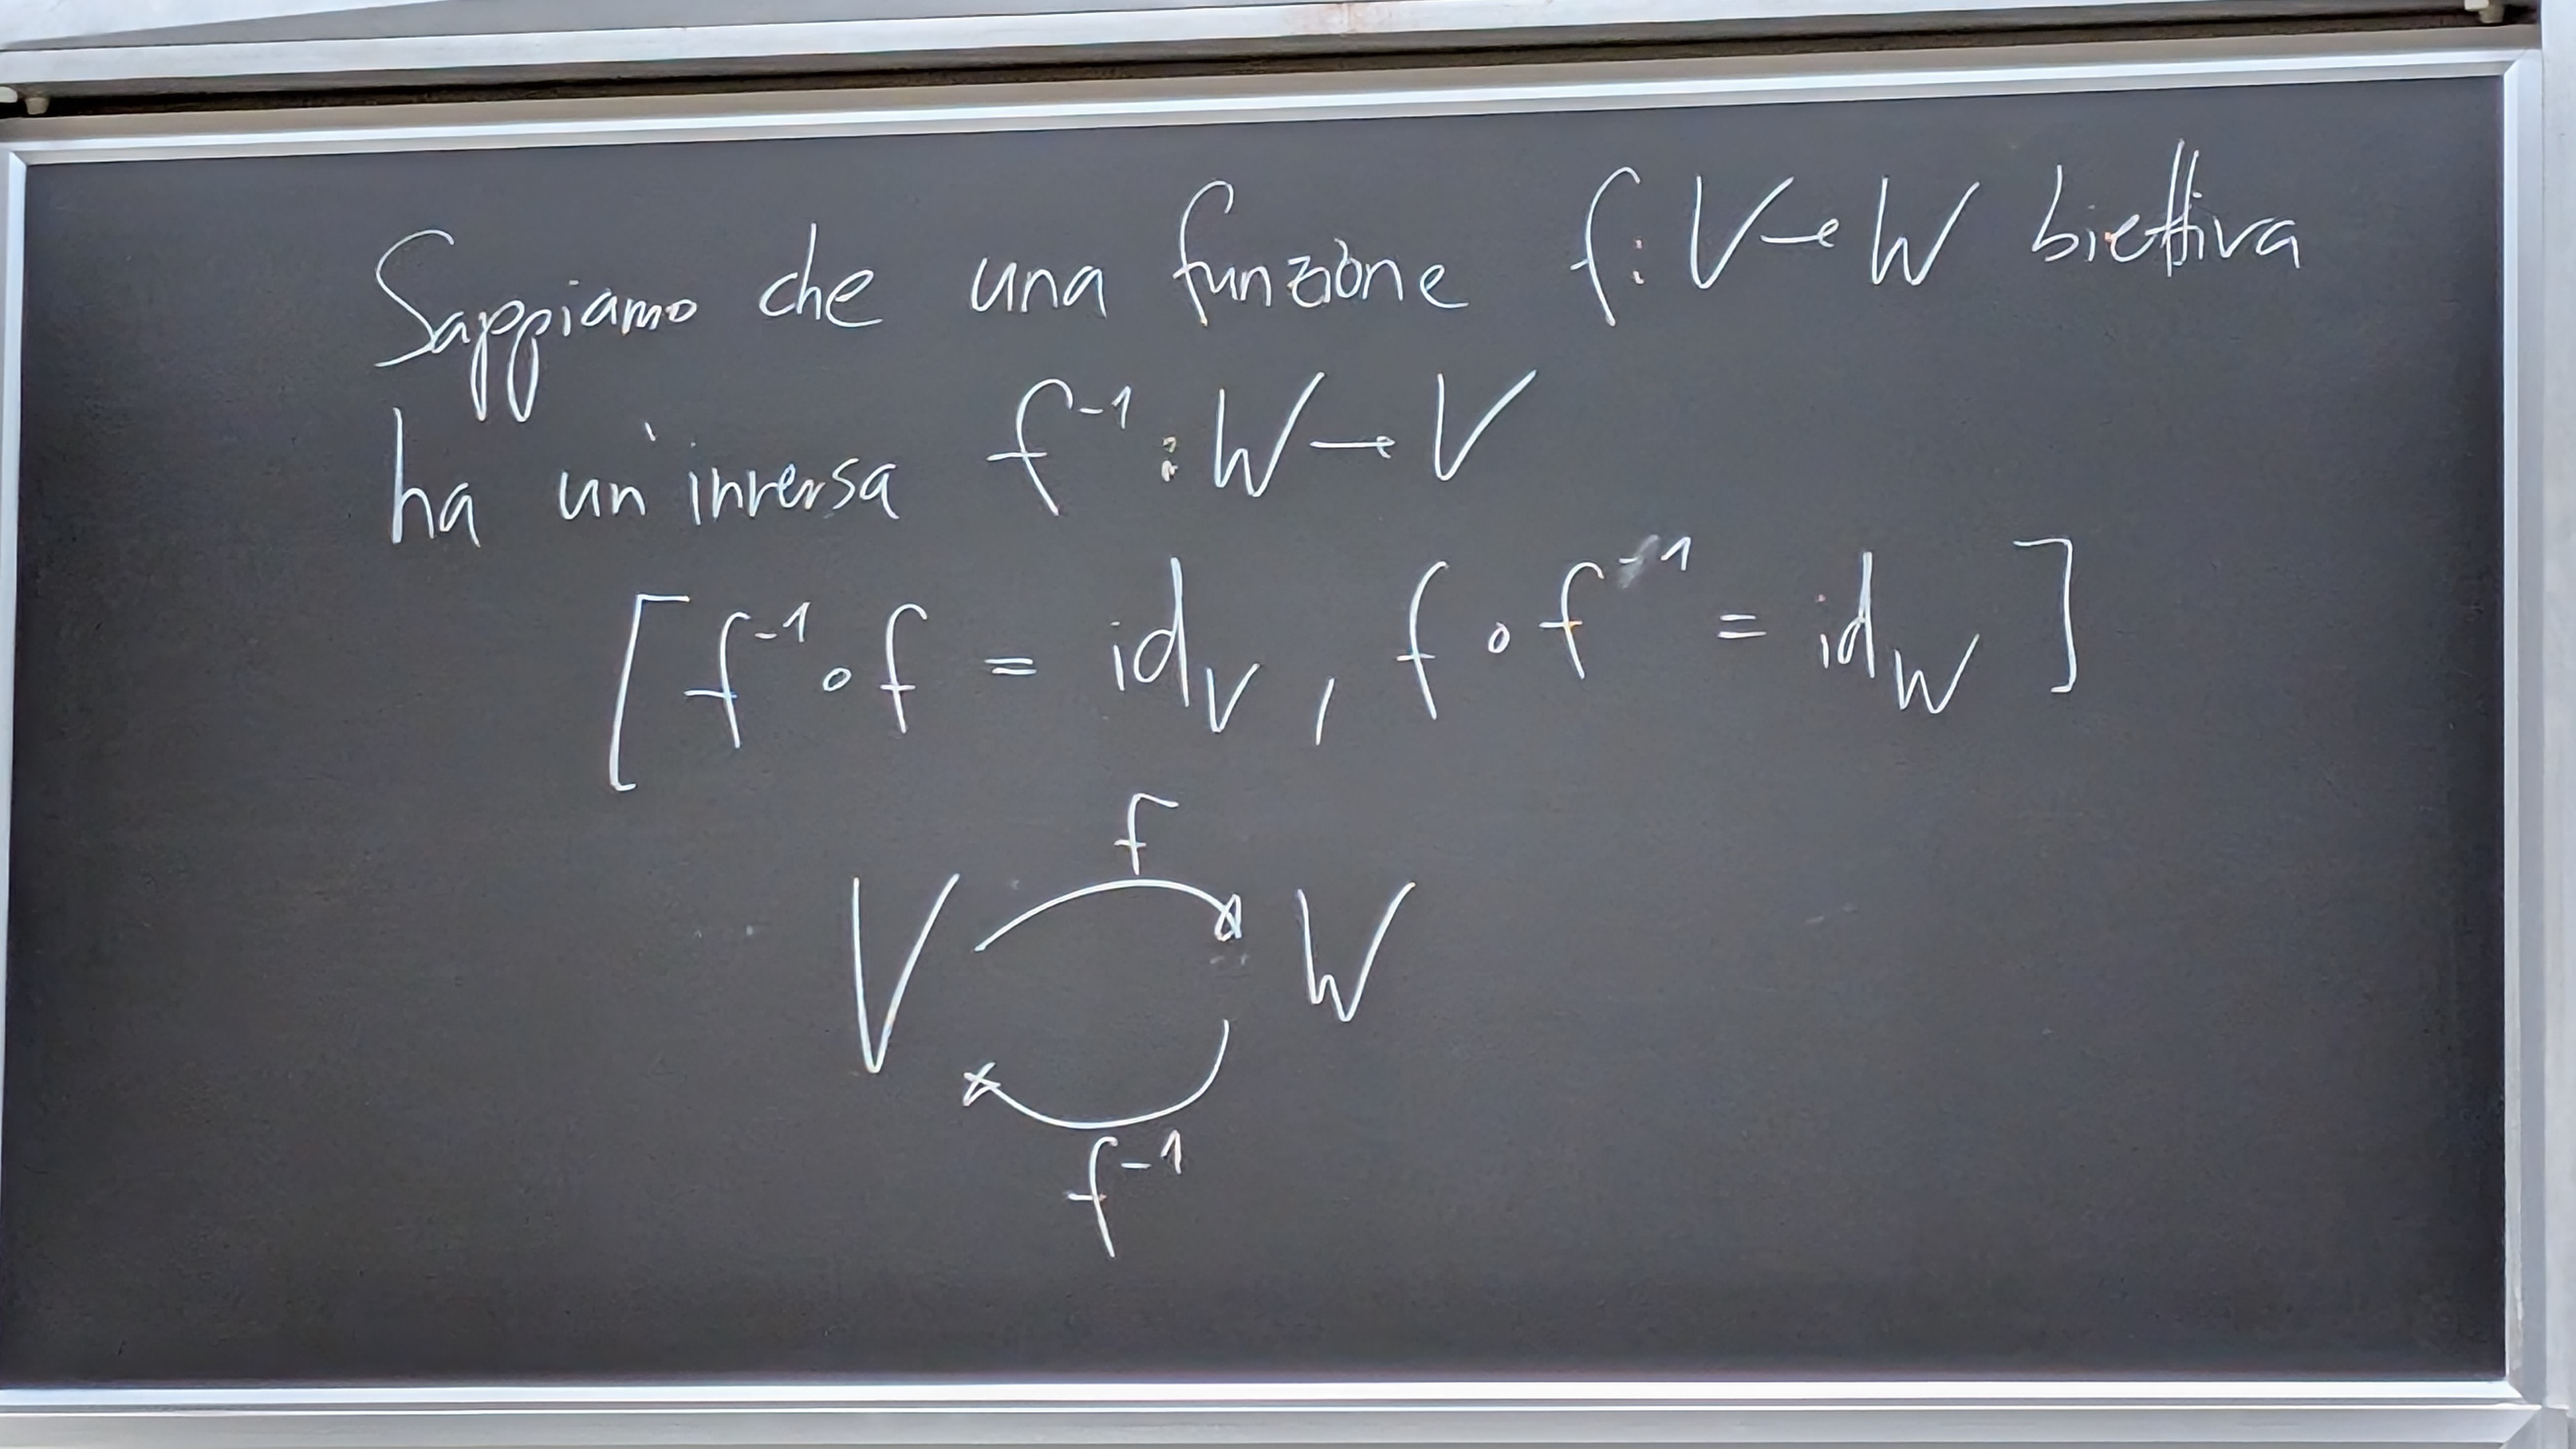 Sappiamo che una funzione f: V → W biettiva
ha un'inversa f⁻¹ : W → V
[ f⁻¹ ∘ f = id_V , f ∘ f⁻¹ = id_W ]
f
V W
f⁻¹